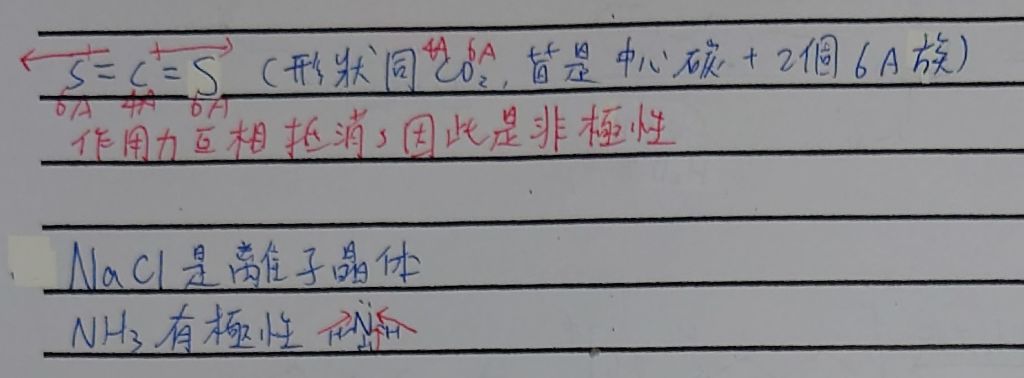 S=C=S (形狀同CO₂,皆是中心碳+2個6A族)
4A 6A
6A 4A 6A
作用力互相抵消,因此是非極性
NaCl是離子晶体
NH₃有極性 H N H H